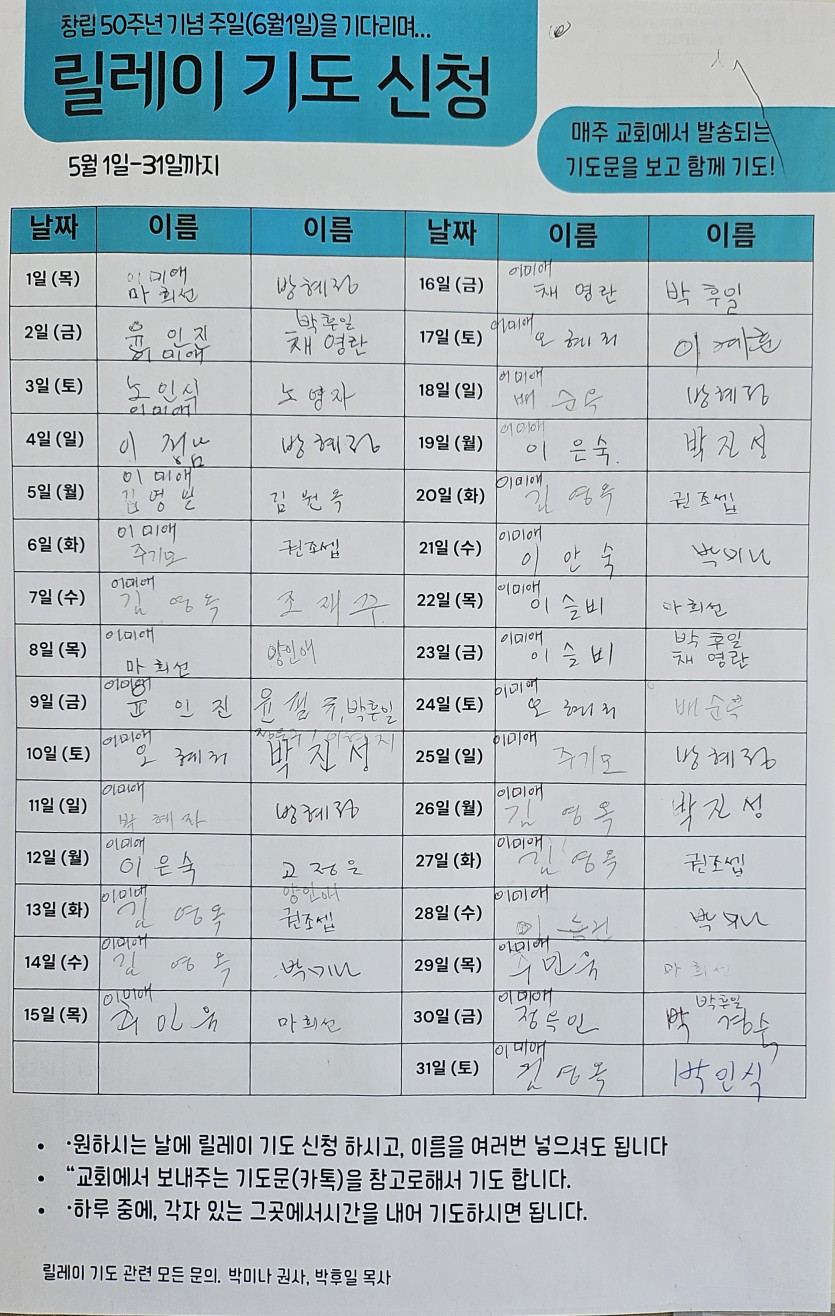 창립 50주년 기념 주일(6월1일)을 기다리며...
릴레이 기도 신청
5월 1일-31일까지
매주 교회에서 발송되는
기도문을 보고 함께 기도!
날짜 이름 이름 날짜 이름 이름
1일 (목) 이미애 마희선 방혜정 16일 (금) 이미애 채영란 박후일
2일 (금) 윤인진 이미애 박후일 채영란 17일 (토) 이미애 오혜리
3일 (토) 노인식 이미애 노영자 18일 (일) 이미애 배순옥 방혜정
4일 (일) 이정남 방혜정 19일 (월) 이미애 이은숙 박진성
5일 (월) 이미애 김원옥 20일 (화) 이미애 김영옥 권조셉
6일 (화) 이미애 주기모 권조셉 21일 (수) 이미애 이안숙 박미나
7일 (수) 이미애 김영옥 조재구 22일 (목) 이미애 이슬비 마희선
8일 (목) 이미애 마희선 양인애 23일 (금) 이미애 이슬비 박후일 채영란
9일 (금) 이미애 윤인진 박후일 24일 (토) 이미애 오혜리 배순옥
10일 (토) 이미애 오혜리 박진성 25일 (일) 이미애 주기모 방혜정
11일 (일) 이미애 박혜자 방혜정 26일 (월) 이미애 김영옥 박진성
12일 (월) 이미애 이은숙 고정은 27일 (화) 이미애 김영옥 권조셉
13일 (화) 이미애 김영옥 양인애 권조셉 28일 (수) 이미애 박미나
14일 (수) 이미애 김영옥 박미나 29일 (목) 이미애 마희선
15일 (목) 이미애 마희선 30일 (금) 이미애 박후일
31일 (토) 이미애 김영옥 박인식
• ·원하시는 날에 릴레이 기도 신청 하시고, 이름을 여러번 넣으셔도 됩니다
• “교회에서 보내주는 기도문(카톡)을 참고로해서 기도 합니다.
• ·하루 중에, 각자 있는 그곳에서시간을 내어 기도하시면 됩니다.
릴레이 기도 관련 모든 문의. 박미나 권사, 박후일 목사